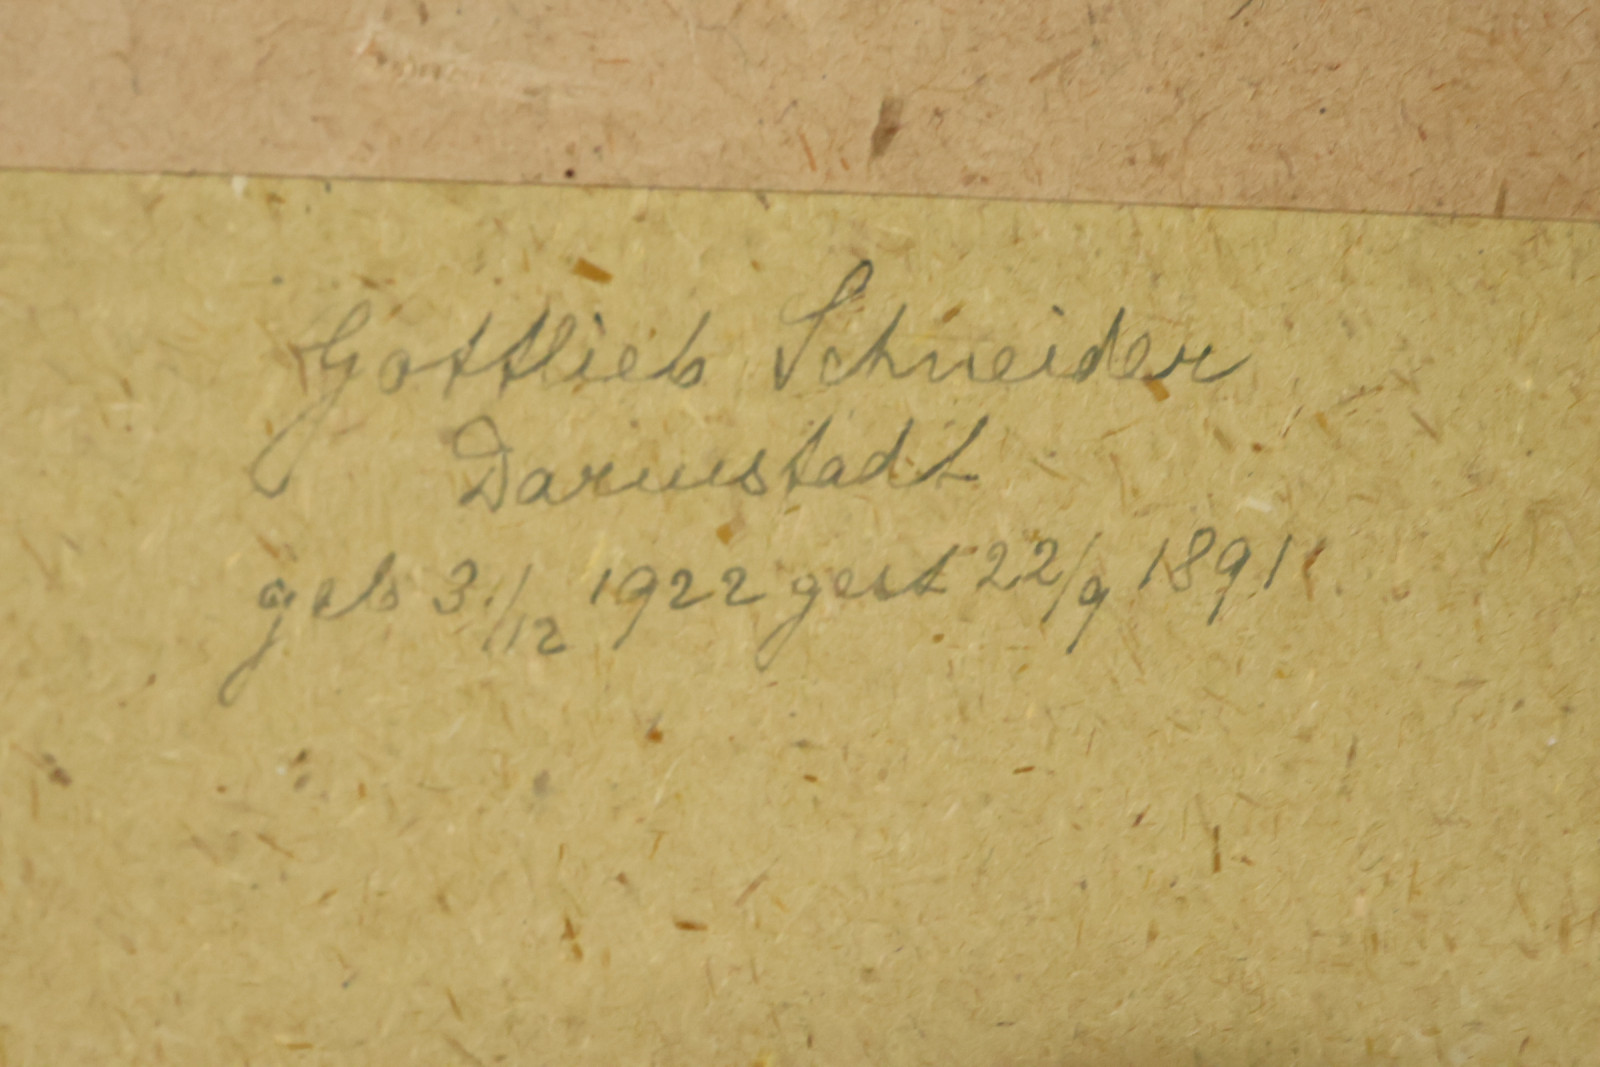 Gottlieb Schneider
Darmstadt
geb 3./12 1922 gest 22/9 1891